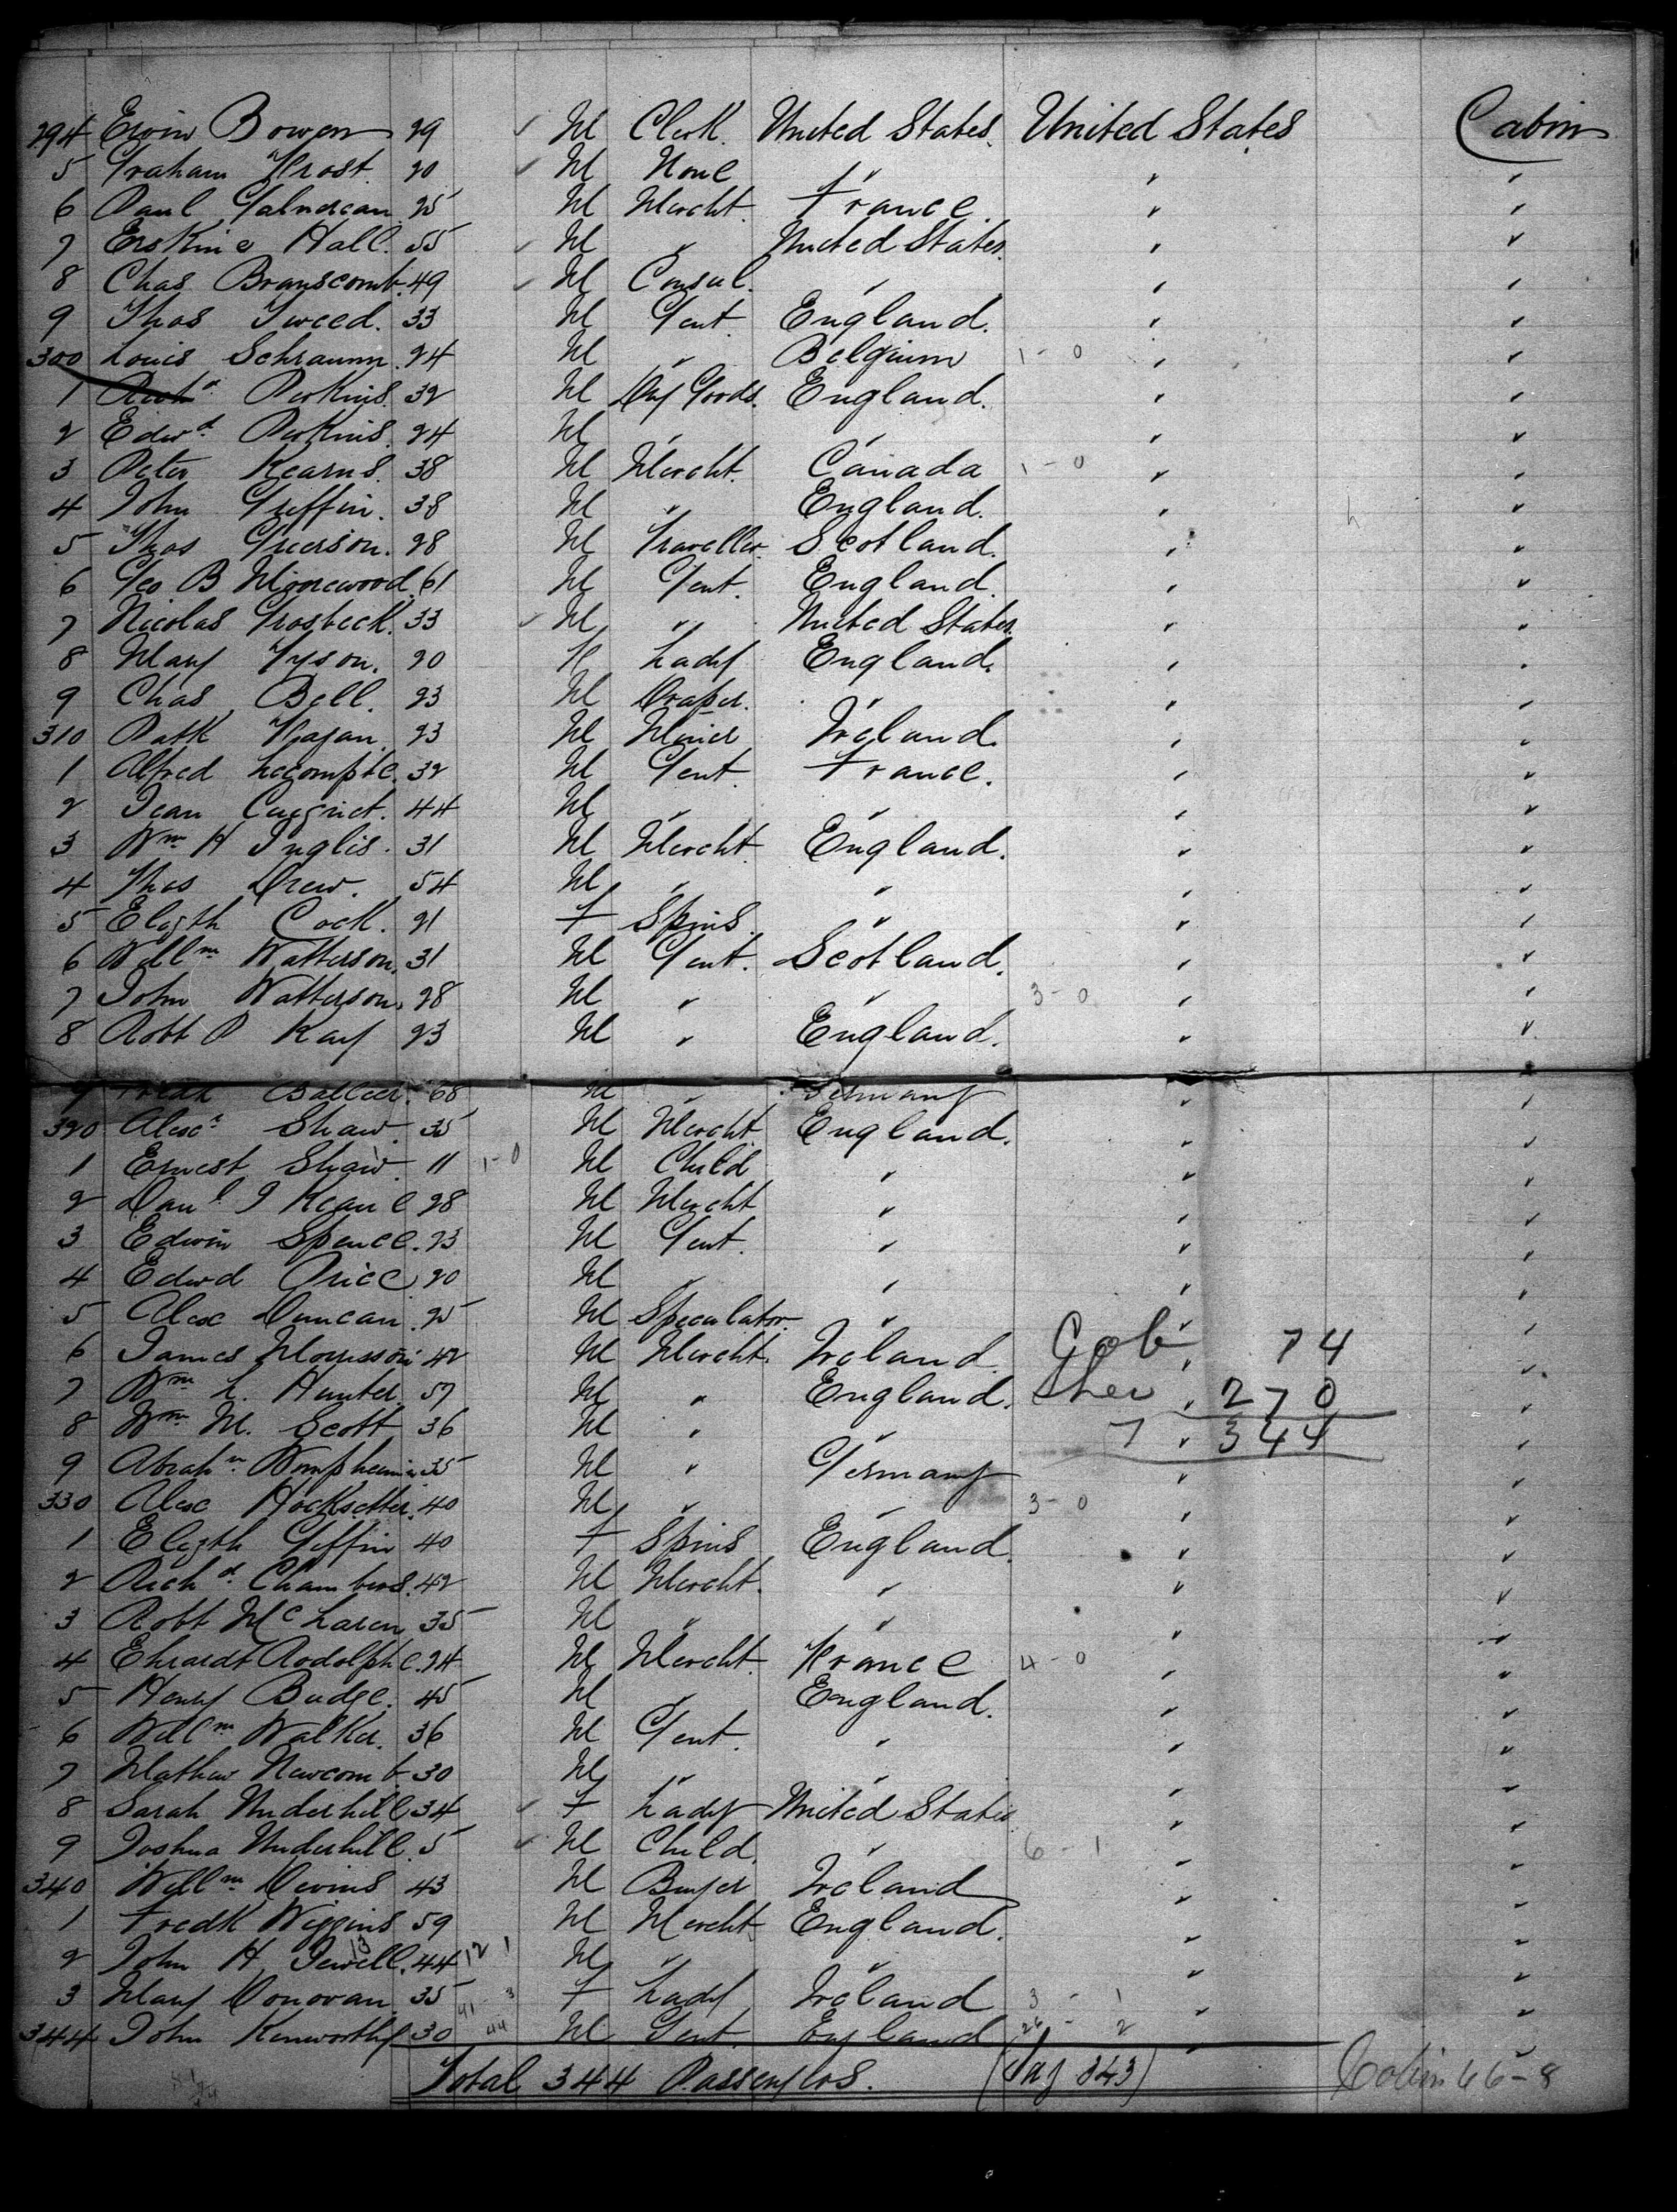 294 Ervin Bowen 29 ✓ M Clerk. United States. United States Cabin
5 Graham Frost. 20 ✓ M None " " "
6 Paul 25 M Mercht. France. " "
7 Erskine Hall. 55 ✓ M " United States. " "
8 Chas Branscomb. 49 ✓ M Consul. " " "
9 Thos Tweed. 33 M Gent. England. " "
300 Louis Schraumm. 24 M " Belgium 1-0 " "
1 Richd Perkins. 32 M Dry Goods. England. " "
2 Edwd Perkins. 24 M " " " "
3 Peter Kearns. 38 M Mercht. Canada 1-0 " "
4 John Griffin. 38 M " England. " "
5 Thos Grierson. 28 M Traveller. Scotland. " "
6 Geo B Monewood. 61 M Gent. England. " "
7 Nicolas Grosbeck. 33 ✓ M " United States. " "
8 Mary Tyson. 20 F Lady England. " "
9 Chas Bell. 23 M Draper. " " "
310 Patk Fagan. 23 M Miner Ireland. " "
1 Alfred Lecompte. 32 M Gent France. " "
2 Jean Cugnet. 44 M " " " "
3 Wm H Inglis. 31 M Mercht. England. " "
4 Thos Drew. 54 M " " " "
5 Elizth Cock. 21 F Spins. " " "
6 Willm Watterson. 31 M Gent. Scotland. " "
7 John Watterson. 28 M " " 3-0 " "
8 Robt P Kay 23 M " England. " "
9 Fredk 68 M " Germany " "
320 Alexr Shaw. 35 M Mercht. England. " "
1 Ernest Shaw. 11 1-0 M Child " " "
2 Danl J Keane 28 M Mercht " " "
3 Edwin Spence. 23 M Gent. " " "
4 Edwd Price 20 M " " " "
5 Alex Duncan. 25 M Speculator. " " "
6 James Morrisson 42 M Mercht. Ireland. " " Cab 74
7 Wm L. Hunter. 57 M " England. " " Stee 270
8 Wm M. Scott 36 M " " " " 7 344
9 Abrahm 35 M " Germany " "
330 Alex Hocksetter. 40 M " " 3-0 " "
1 Elizth Giffin 40 F Spins England. " "
2 Richd Chambers. 42 M Mercht. " " "
3 Robt McLaren 35 M " " " "
4 Ehrardt Rodolphe. 24 M Mercht. France 4-0 " "
5 Henry Budge. 45 M " England. " "
6 Willm Walker. 36 M Gent. " " "
7 Mathew Newcomb. 30 M " " " "
8 Sarah Underhill 34 ✓ F Lady United States " "
9 Joshua Underhill. 5 ✓ M Child. " 6-1 " "
340 Willm Devins 43 M Buyer Ireland " "
1 Fredk Wiggins 59 M Mercht England. " "
2 John H Jewell. 44 13 12 1 M " " " "
3 Mary Donovan. 35 41-3 F Lady Ireland 3-1 " "
344 John Kenworthy 30 44 M Gent. England 26-2 " "
Total 344 Passengers. (Say 343) Cabin 66-8